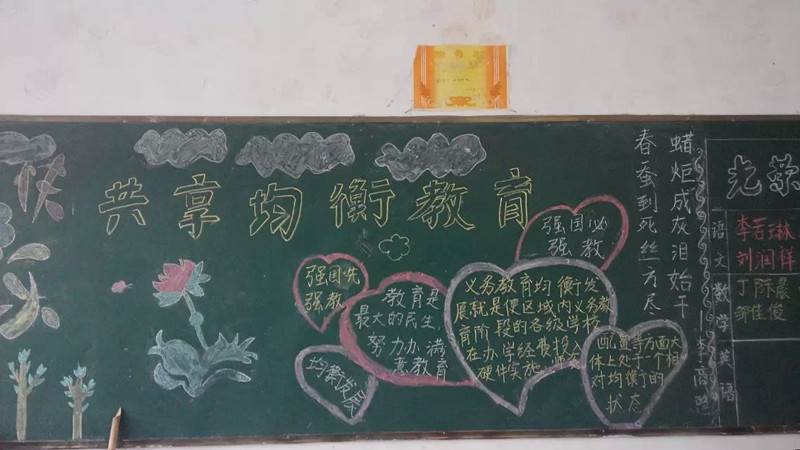 共享均衡教育
春蚕到死丝方尽
蜡炬成灰泪始干
强国必
强教
强国先
强教
教育是
最大的民生
努力办满
意教育
均衡发展
义务教育均衡发
展就是使区域内义务教
育阶段的各级学校
在办学经费投入
硬件实施
等方面大
体上处于一个相
对均衡的
状态
李商隐
光荣
语文
李若琳
刘润祥
数学
丁陈晨
邹佳俊
英语